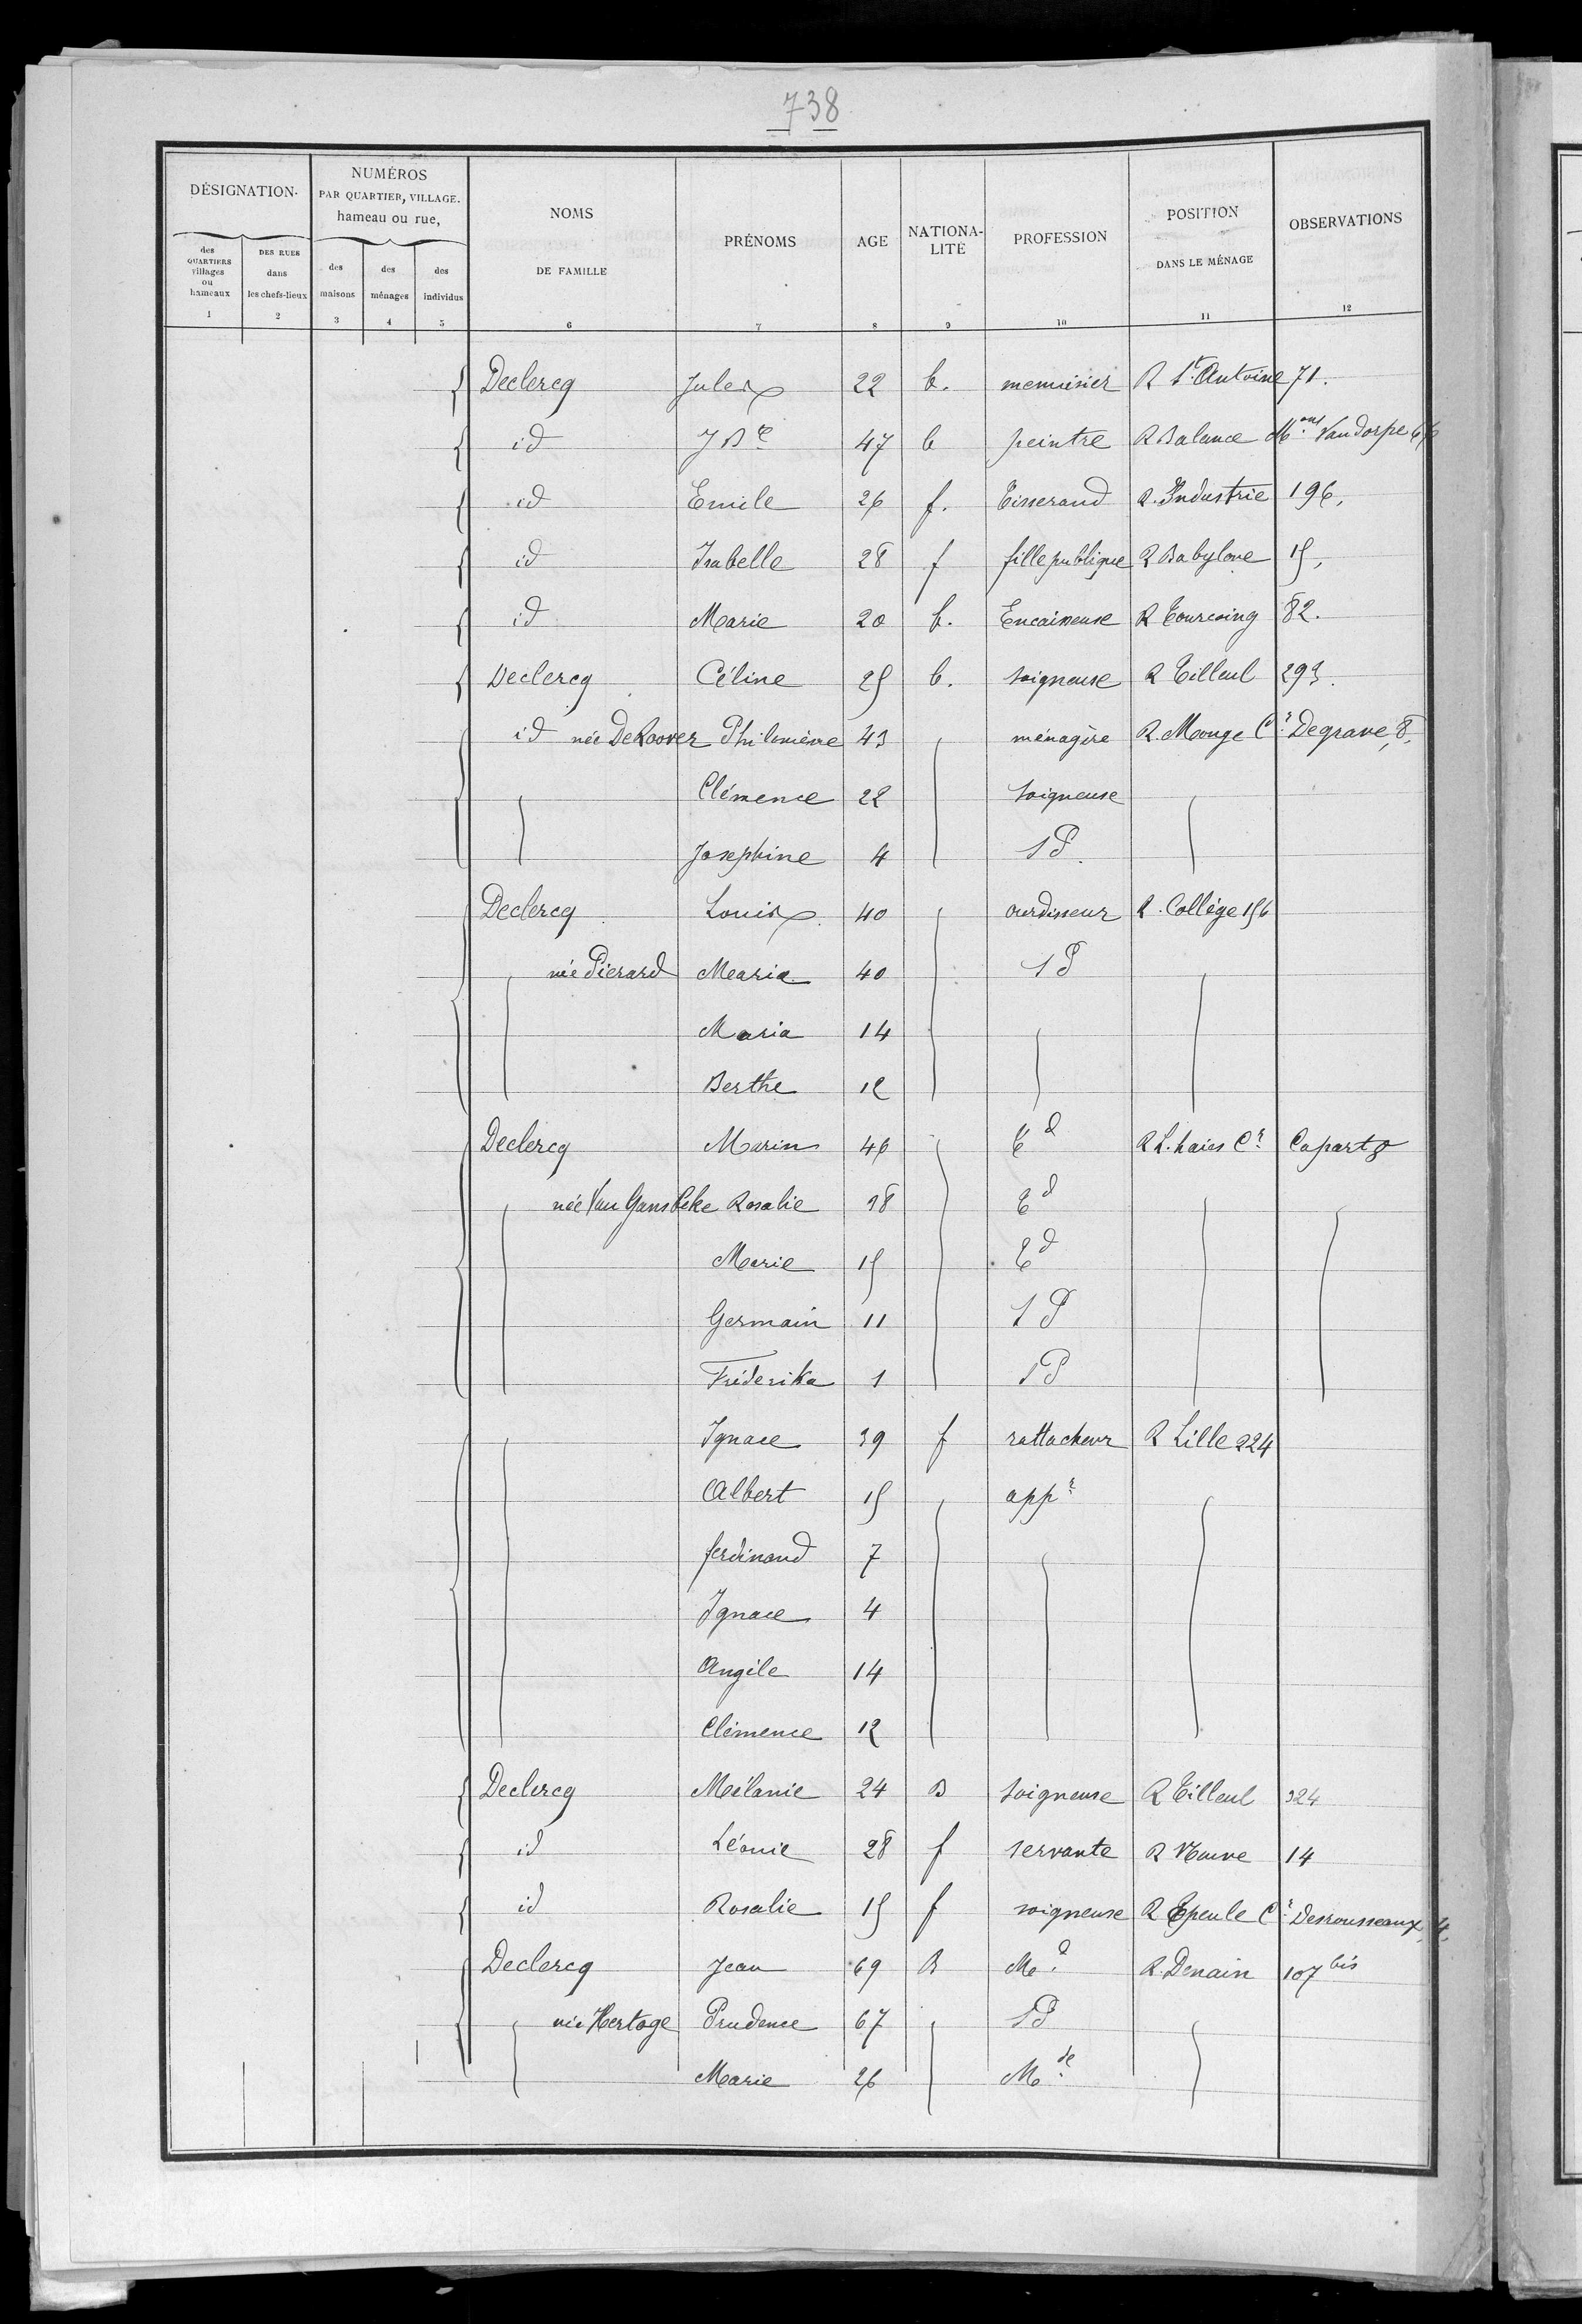 738
DÉSIGNATION
NUMÉROS PAR QUARTIER, VILLAGE. hameau ou rue,
NOMS DE FAMILLE
PRÉNOMS
AGE
NATIONALITÉ
PROFESSION
POSITION DANS LE MÉNAGE
OBSERVATIONS
des QUARTIERS villages ou hameaux
DES RUES dans les chefs-lieux
des maisons
des ménages
des individus
1 2 3 4 5 6 7 8 9 10 11 12
Declercq Jules 22 b. menuisier R St. Antoine 71.
id J Bte 47 b peintre R Balance Mons Vandorpe
id Emile 26 f. Tisserand R. Industrie 196.
id Isabelle 28 f fille publique R Babylone 15,
id Marie 20 b. Encaisseuse R Tourcoing 82.
Declercq Céline 25 b. soigneuse R Tilleul 293.
id née DeRoover Philomène 43 ménagère R. Monge Cr Degrave, 8.
Clémence 22 soigneuse
Josephine 4 SP.
Declercq Louis 40 ourdisseur R. Collége 156
née Pierard Maria 40 SP
Maria 14
Berthe 12
Declercq Marin 46 Td R L. haies Cr Capart 8
née Van Gansbeke Rosalie 38 Td
Marie 15 Td
Germain 11 SP
Fréderika 1 SP
Ignace 39 f rattacheur R Lille 224
Albert 15 appr
ferdinand 7
Ignace 4
Angèle 14
Clémence 12
Declercq Mélanie 24 B soigneuse R Tilleul 324
id Léonie 28 f servante R Neuve 14
id Rosalie 15 f soigneuse R Epeule Cr Desrousseaux, 4.
Declercq Jean 69 B Md R. Denain 107 bis
née Hertoge Prudence 67 SP
Marie 26 Mde